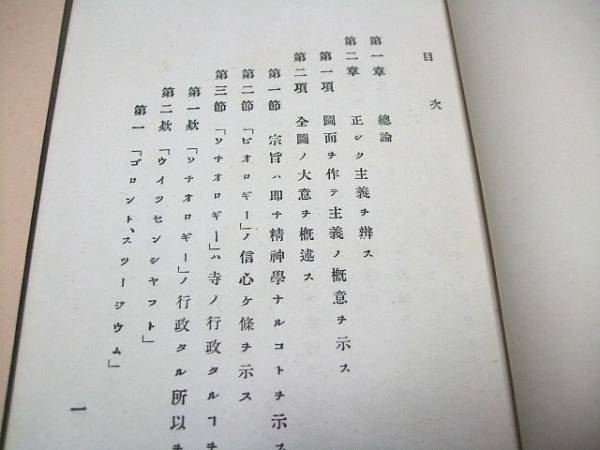 目次
第一章 總論
第二章 正シク主義ヲ辨ス
第一項 圖面ヲ作テ主義ノ概意ヲ示ス
第二項 全圖ノ大意ヲ概述ス
第一節 宗旨ハ即チ精神學ナルコトヲ示ス
第二節 「ビオロギー」ノ信心ケ條ヲ示ス
第三節 「ソチオロギー」ハ寺ノ行政タルヿヲ
第一欵 「ソチオロギー」ノ行政タル所以ヲ
第二欵 「ウイツセンシヤフト」
第一 「ゴロント、スツージウム」
一